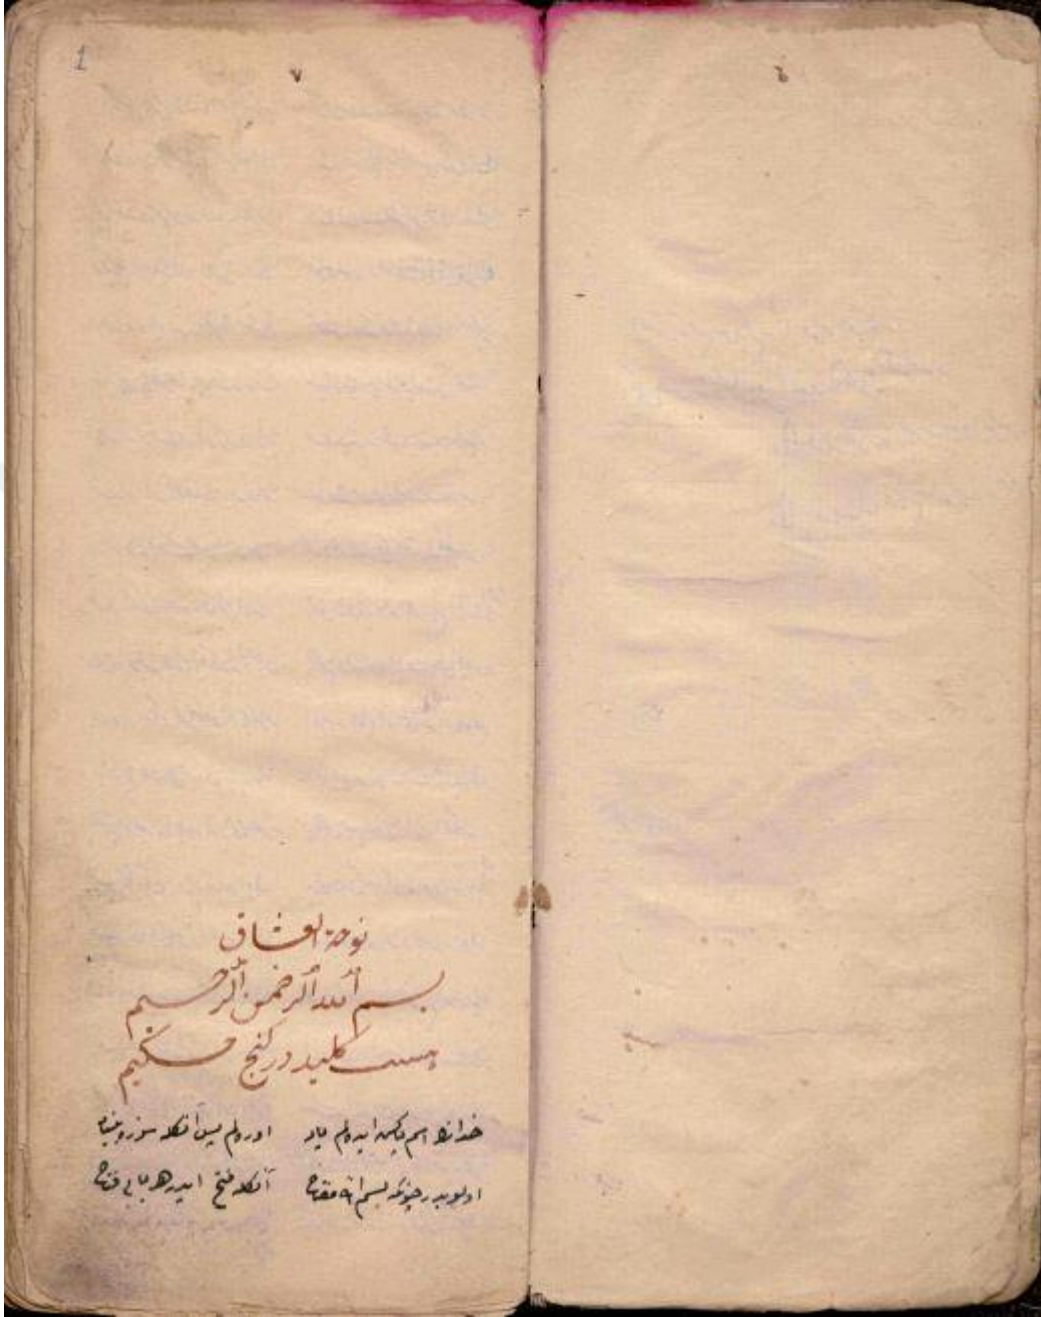 نوحة العشاق
بسم الله الرحمن الرحيم
هست كليد در گنج حكيم
خدانك اسم پاكين ايده لم ياد اوره لم پس آنكله سوزه بنياد
اولوبدر چونكه بسم الله مفتاح آنكله فتح ايدر هر بابی فتاح
1
٧